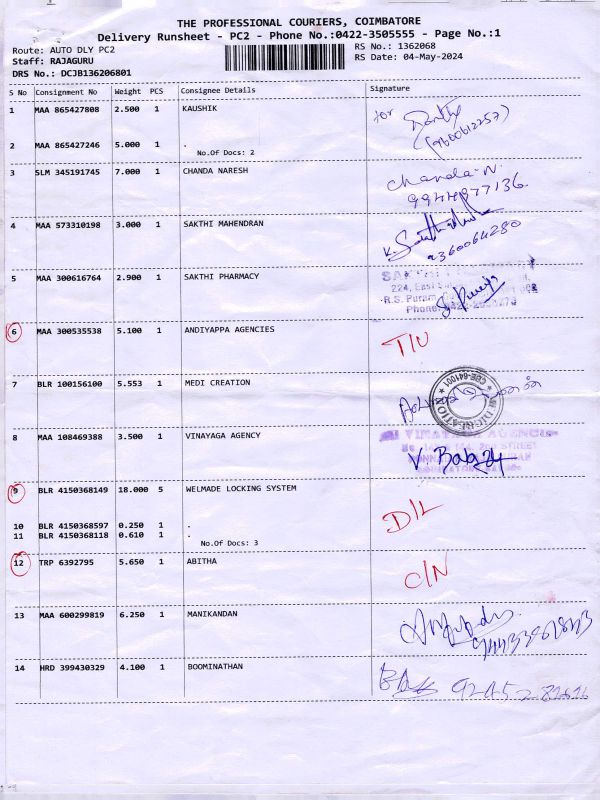 THE PROFESSIONAL COURIERS, COIMBATORE
Delivery Runsheet - PC2 - Phone No.:0422-3505555 - Page No.:1
Route: AUTO DLY PC2
RS No.: 1362068
Staff: RAJAGURU
RS Date: 04-May-2024
DRS No.: DCJB136206801
S No Consignment No Weight PCS Consignee Details Signature
1 MAA 865427808 2.500 1 KAUSHIK for
(9600612257)
2 MAA 865427246 5.000 1 .
No.Of Docs: 2
3 SLM 345191745 7.000 1 CHANDA NARESH Chanda.N.
4 MAA 573310198 3.000 1 SAKTHI MAHENDRAN
9360064280
5 MAA 300616764 2.900 1 SAKTHI PHARMACY
224, East
R.S. Puram
Phone
6 MAA 300535538 5.100 1 ANDIYAPPA AGENCIES
7 BLR 100156100 5.553 1 MEDI CREATION
CBE-641001
8 MAA 108469388 3.500 1 VINAYAGA AGENCY
9 BLR 4150368149 18.000 5 WELMADE LOCKING SYSTEM D/L
10 BLR 4150368597 0.250 1 .
11 BLR 4150368118 0.610 1 .
No.Of Docs: 3
12 TRP 6392795 5.650 1 ABITHA C/N
13 MAA 600299819 6.250 1 MANIKANDAN
14 HRD 399430329 4.100 1 BOOMINATHAN